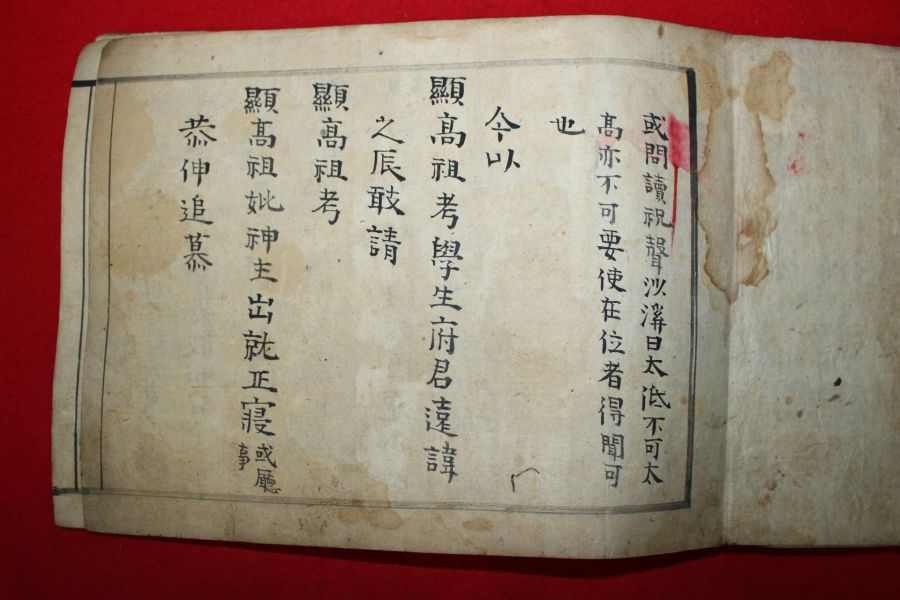 或問讀祝聲沙溪曰太低不可太
高亦不可要使在位者得聞可
也
今以
顯高祖考學生府君遠諱
之辰敢請
顯高祖考
顯高祖妣神主出就正寢或廳事
恭伸追慕